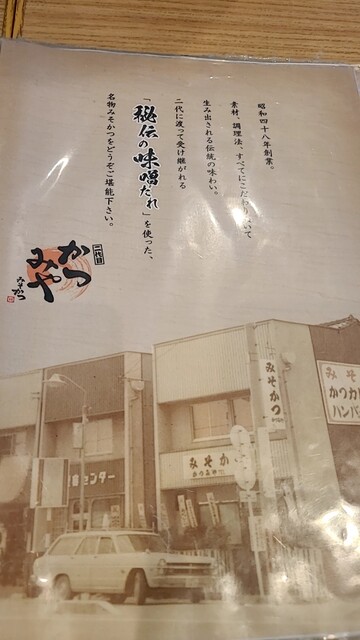 昭和四十八年創業。
素材、調理法、すべてにこだわり抜いて
生み出される伝統の味わい。
二代に渡って受け継がれる
「秘伝の味噌だれ」を使った、
名物みそかつをどうぞご堪能下さい。
二代目
かつ
みや
みそかつ
みそかつ
みそか
センター
みそ
かつカ
ハンバ